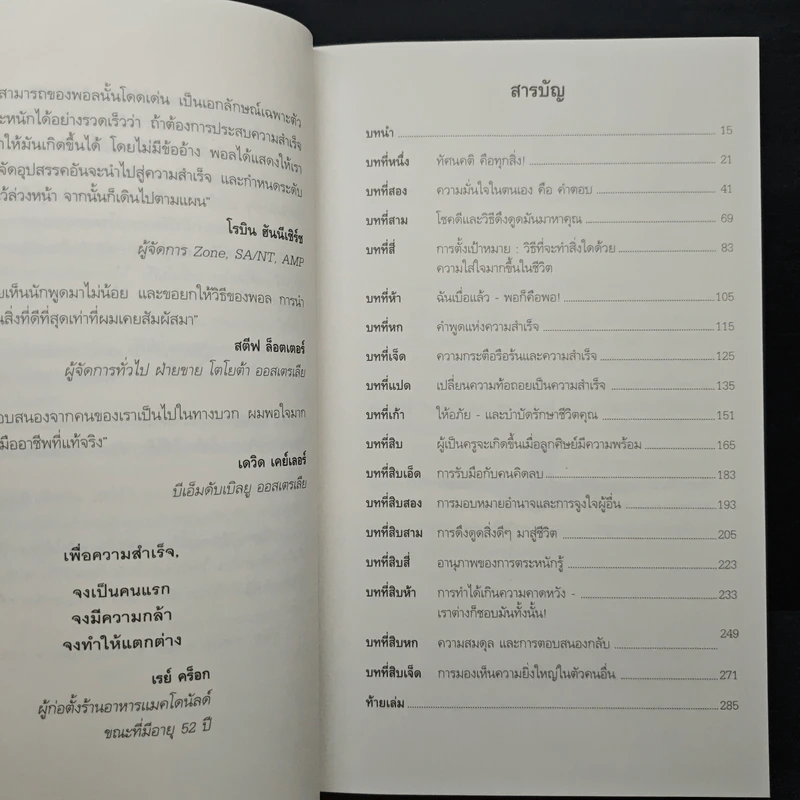 สามารถของพอลนั้นโดดเด่น เป็นเอกลักษณ์เฉพาะตัว
ะหนักได้อย่างรวดเร็วว่า ถ้าต้องการประสบความสำเร็จ
ำให้มันเกิดขึ้นได้ โดยไม่มีข้ออ้าง พอลได้แสดงให้เรา
จัดอุปสรรคอันจะนำไปสู่ความสำเร็จ และกำหนดระดับ
ว้ล่วงหน้า จากนั้นก็เดินไปตามแผน"
โรบิน ฮันนีเชิร์ช
ผู้จัดการ Zone, SA/NT, AMP
ยเห็นนักพูดมาไม่น้อย และขอยกให้วิธีของพอล การนำ
นสิ่งที่ดีที่สุดเท่าที่ผมเคยสัมผัสมา"
สตีฟ ล็อตเตอร์
ผู้จัดการทั่วไป ฝ่ายขาย โตโยต้า ออสเตรเลีย
อบสนองจากคนของเราเป็นไปในทางบวก ผมพอใจมาก
มืออาชีพที่แท้จริง"
เดวิด เคย์เลอร์
บีเอ็มดับเบิลยู ออสเตรเลีย
เพื่อความสำเร็จ,
จงเป็นคนแรก
จงมีความกล้า
จงทำให้แตกต่าง
เรย์ คร็อก
ผู้ก่อตั้งร้านอาหารแมคโดนัลด์
ขณะที่มีอายุ 52 ปี
สารบัญ
บทนำ 15
บทที่หนึ่ง ทัศนคติ คือทุกสิ่ง! 21
บทที่สอง ความมั่นใจในตนเอง คือ คำตอบ 41
บทที่สาม โชคดีและวิธีดึงดูดมันมาหาคุณ 69
บทที่สี่ การตั้งเป้าหมาย : วิธีที่จะทำสิ่งใดด้วย 83
ความใส่ใจมากขึ้นในชีวิต
บทที่ห้า ฉันเบื่อแล้ว - พอก็คือพอ! 105
บทที่หก คำพูดแห่งความสำเร็จ 115
บทที่เจ็ด ความกระตือรือร้นและความสำเร็จ 125
บทที่แปด เปลี่ยนความท้อถอยเป็นความสำเร็จ 135
บทที่เก้า ให้อภัย - และบำบัดรักษาชีวิตคุณ 151
บทที่สิบ ผู้เป็นครูจะเกิดขึ้นเมื่อลูกศิษย์มีความพร้อม 165
บทที่สิบเอ็ด การรับมือกับคนคิดลบ 183
บทที่สิบสอง การมอบหมายอำนาจและการจูงใจผู้อื่น 193
บทที่สิบสาม การดึงดูดสิ่งดีๆ มาสู่ชีวิต 205
บทที่สิบสี่ อานุภาพของการตระหนักรู้ 223
บทที่สิบห้า การทำได้เกินความคาดหวัง - 233
เราต่างก็ชอบมันทั้งนั้น!
บทที่สิบหก ความสมดุล และการตอบสนองกลับ 249
บทที่สิบเจ็ด การมองเห็นความยิ่งใหญ่ในตัวคนอื่น 271
ท้ายเล่ม 285